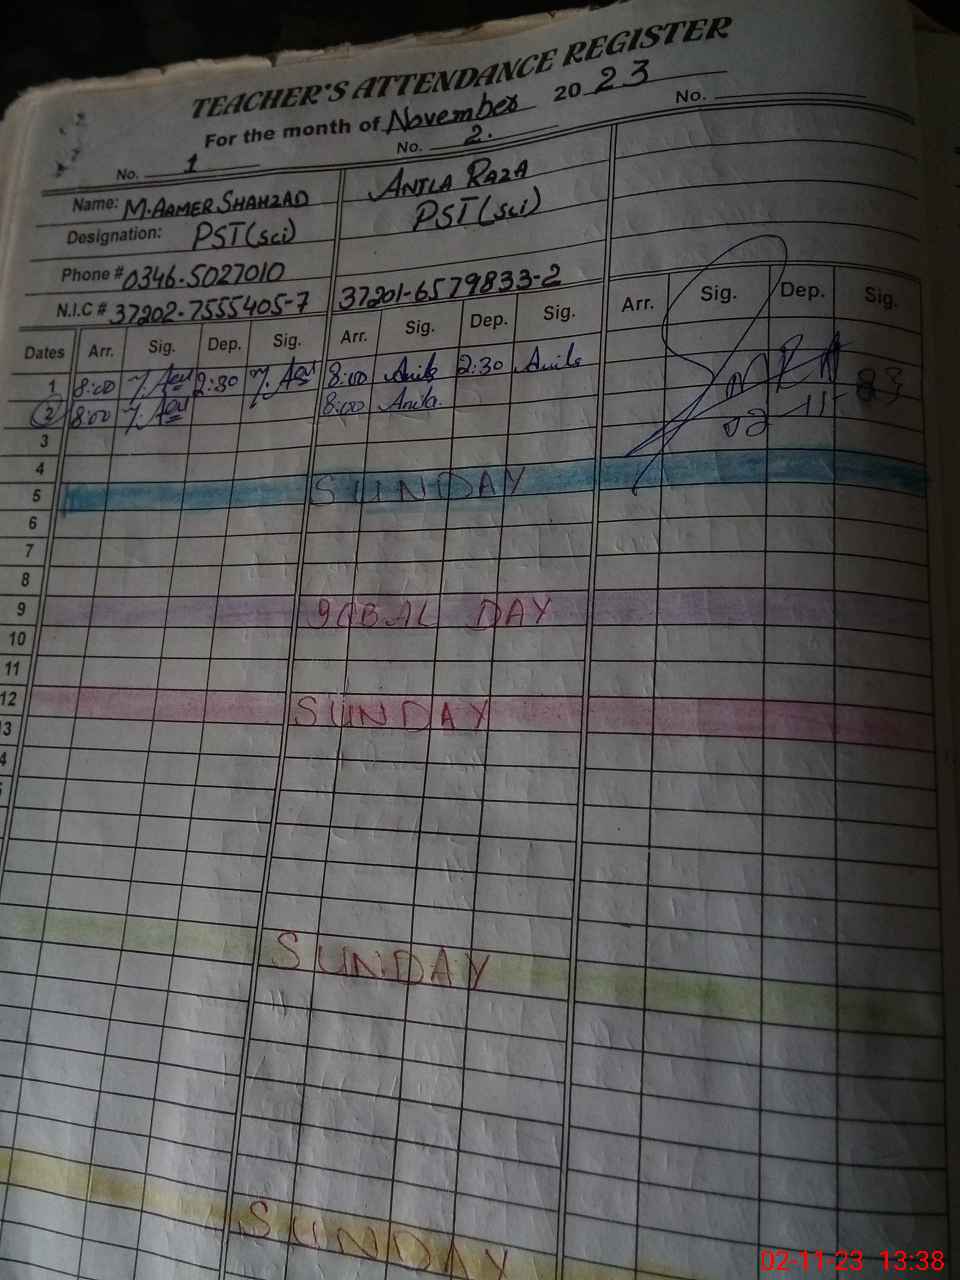 TEACHER'S ATTENDANCE REGISTER
For the month of November 2023
No. 1 No. 2. No.
Name: M.AAMER SHAHZAD ANILA RAZA
Designation: PST(sci) PST(sci)
Phone # 0346-5027010
N.I.C # 37202-7555405-7 37201-6579833-2
Dates Arr. Sig. Dep. Sig. Arr. Sig. Dep. Sig. Arr. Sig. Dep. Sig.
1 8:00 2:30 8:00 Anila 2:30 Anila
2 8:00 8:00 Anila
02-11-23
3
4
5 SUNDAY
6
7
8
9 IQBAL DAY
10
11
12 SUNDAY
13
4
SUNDAY
SUNDAY
02-11-23 13:38